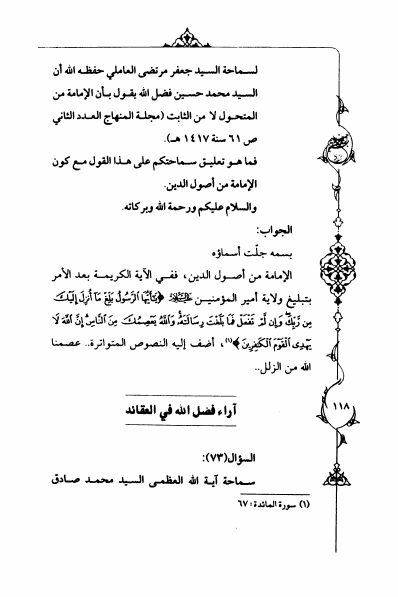 لسماحة السيد جعفر مرتضى العاملي حفظه الله أن
السيد محمد حسين فضل الله يقول بأن الإمامة من
المتحول لا من الثابت (مجلة المنهاج العدد الثاني
ص ٦١ سنة ١٤١٧ هـ).
فما هو تعليق سماحتكم على هذا القول مع كون
الإمامة من أصول الدين.
والسلام عليكم ورحمة الله وبركاته.
الجواب:
بسمه جلّت أسماؤه
الإمامة من أصول الدين، ففي الآية الكريمة بعد الأمر
بتبليغ ولاية أمير المؤمنين ﴿يَٰٓأَيُّهَا ٱلرَّسُولُ بَلِّغْ مَآ أُنزِلَ إِلَيْكَ
مِن رَّبِّكَ وَإِن لَّمْ تَفْعَلْ فَمَا بَلَّغْتَ رِسَالَتَهُۥ وَٱللَّهُ يَعْصِمُكَ مِنَ ٱلنَّاسِ إِنَّ ٱللَّهَ لَا
يَهْدِى ٱلْقَوْمَ ٱلْكَٰفِرِينَ﴾(١)، أضف إليه النصوص المتواترة.. عصمنا
الله من الزلل..
١١٨
آراء فضل الله في العقائد
السؤال(٧٣):
سماحة آية الله العظمى السيد محمد صادق
(١) سورة المائدة: ٦٧